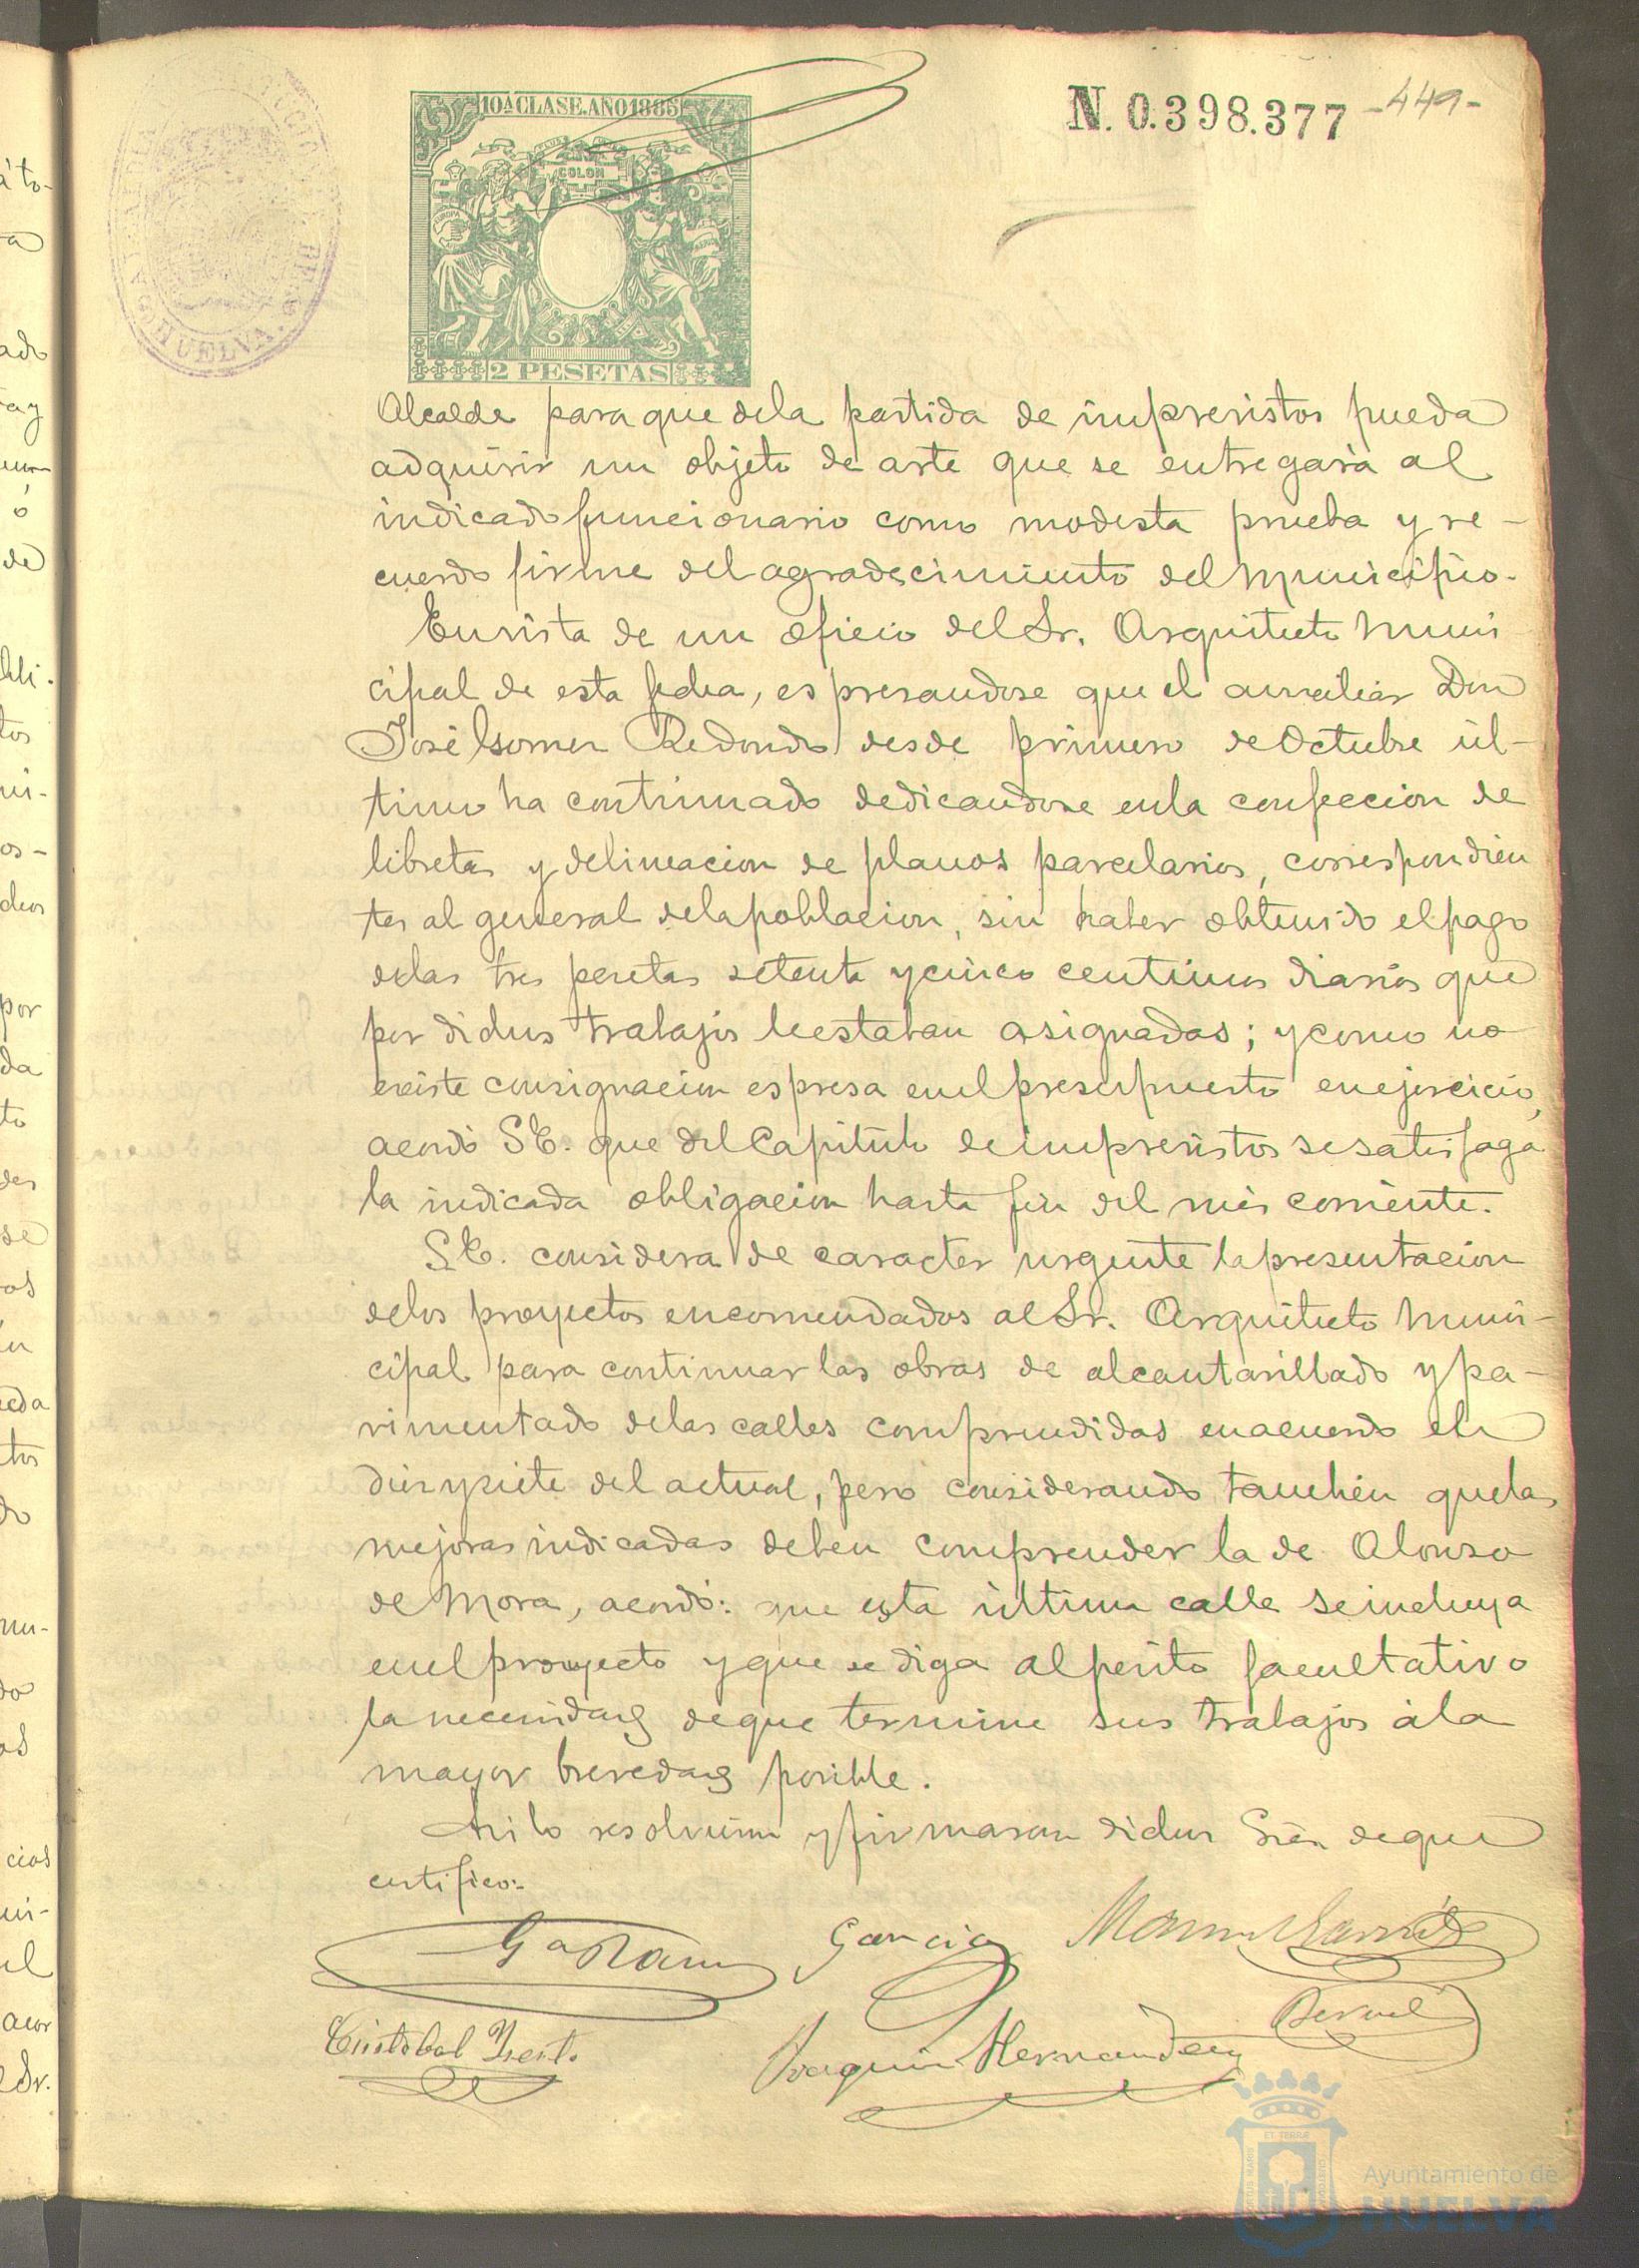 10ª CLASE. AÑO 1885
COLON
2 PESETAS
HUELVA
N. 0.398.377 -449-
Alcalde para que dela partida de imprevistos pueda
adquirir un objeto de arte que se entregará al
indicado funcionario como modesta prueba y re-
cuerdo firme del agradecimiento del Municipio.
En vista de un oficio del Sr. Arquitecto Muni
cipal de esta fecha, espresandose que el auxiliar Don
José Redondo desde primero de Octubre úl-
timo ha continuado dedicandose enla confeccion de
libretas y delineacion de planos parcelarios, correspondien
tes al general dela poblacion, sin haber obtenido el pago
delas tres pesetas setenta y cinco centimos diarios que
por dichos trabajos le estaban asignadas; y como no
existe consignacion espresa enel presupuesto en ejercicio,
acordó S.E. que del Capitulo de imprevistos se satisfaga
la indicada obligacion hasta fin del mes corriente.
S.E. considera de caracter urgente la presentacion
delos proyectos encomendados al Sr. Arquitecto Muni-
cipal para continuar las obras de alcantarillado y pa-
vimentado delas calles comprendidas en acuerdo el
diez y siete del actual, pero considerando tambien que las
mejoras indicadas deben comprender la de Alonso
de Mora, acordó: que esta última calle se incluya
enel proyecto y que se diga al perito facultativo
la necesidad de que termine sus trabajos á la
mayor brevedad posible.
Asi lo resolvieron y firmaron dichos Sres. de que
certifico:-
Garcia
Cristobal
Joaquin Hernandez
Ayuntamiento de
HUELVA